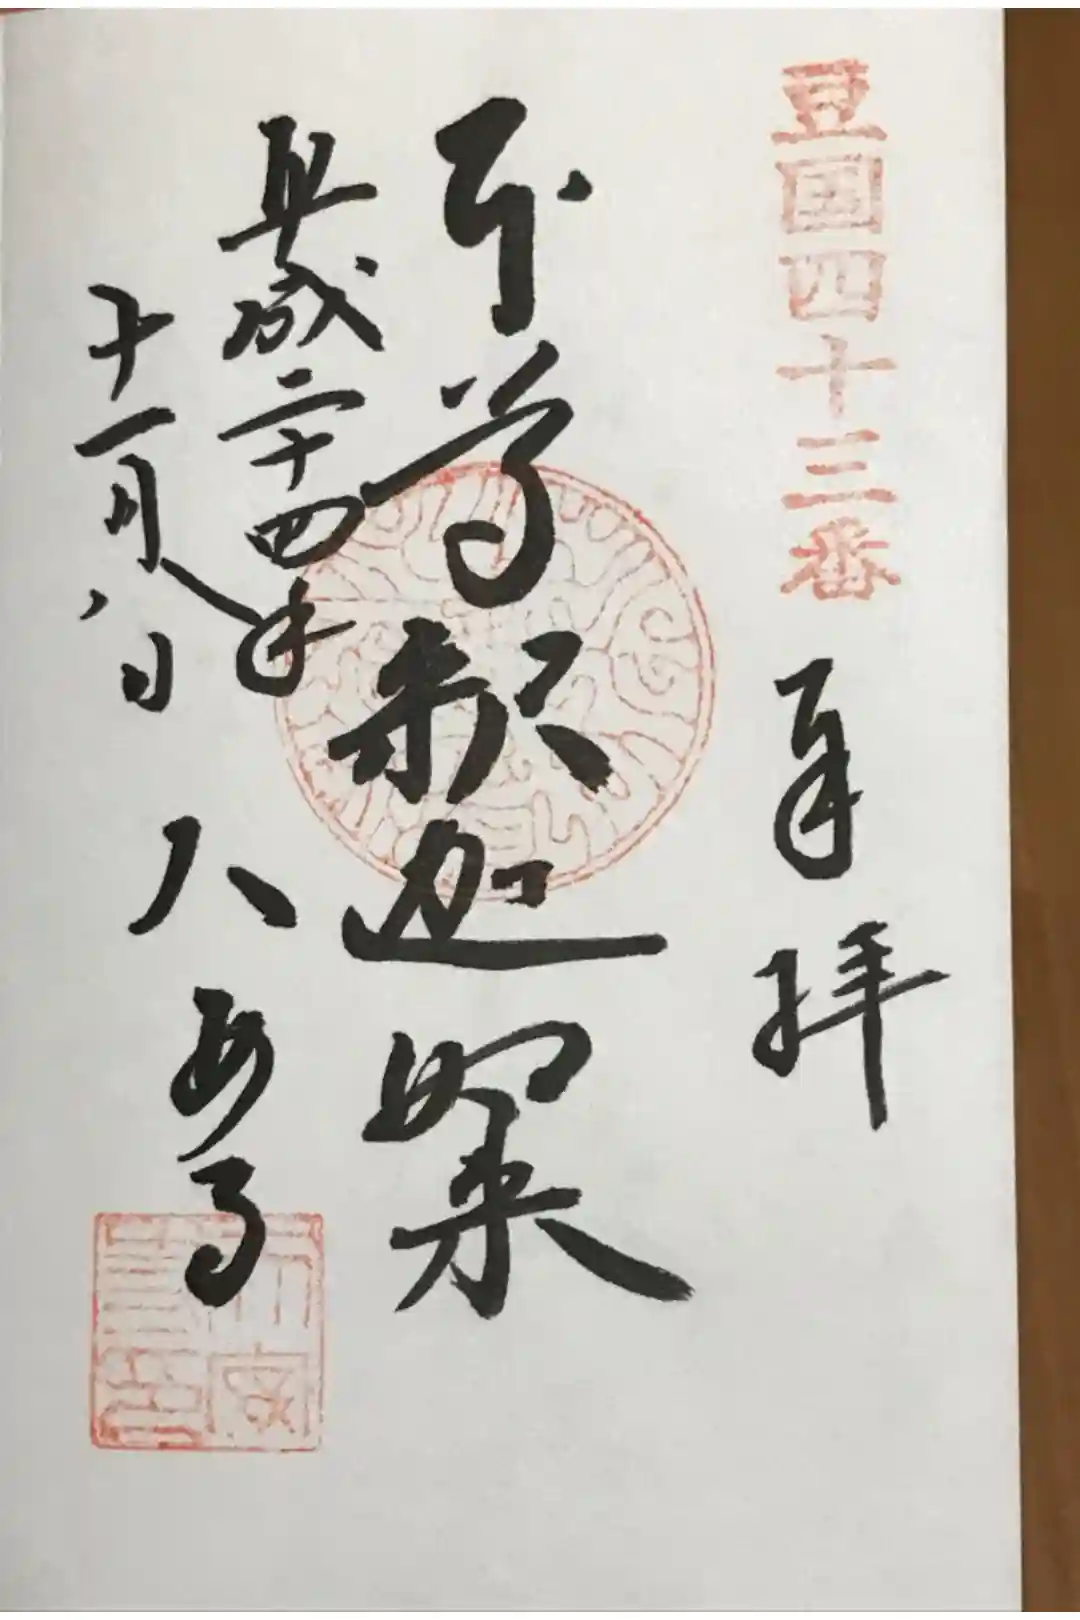 豆国四十三番
拝
本尊釈迦如来
平成二十四年
十一月八日
大安寺